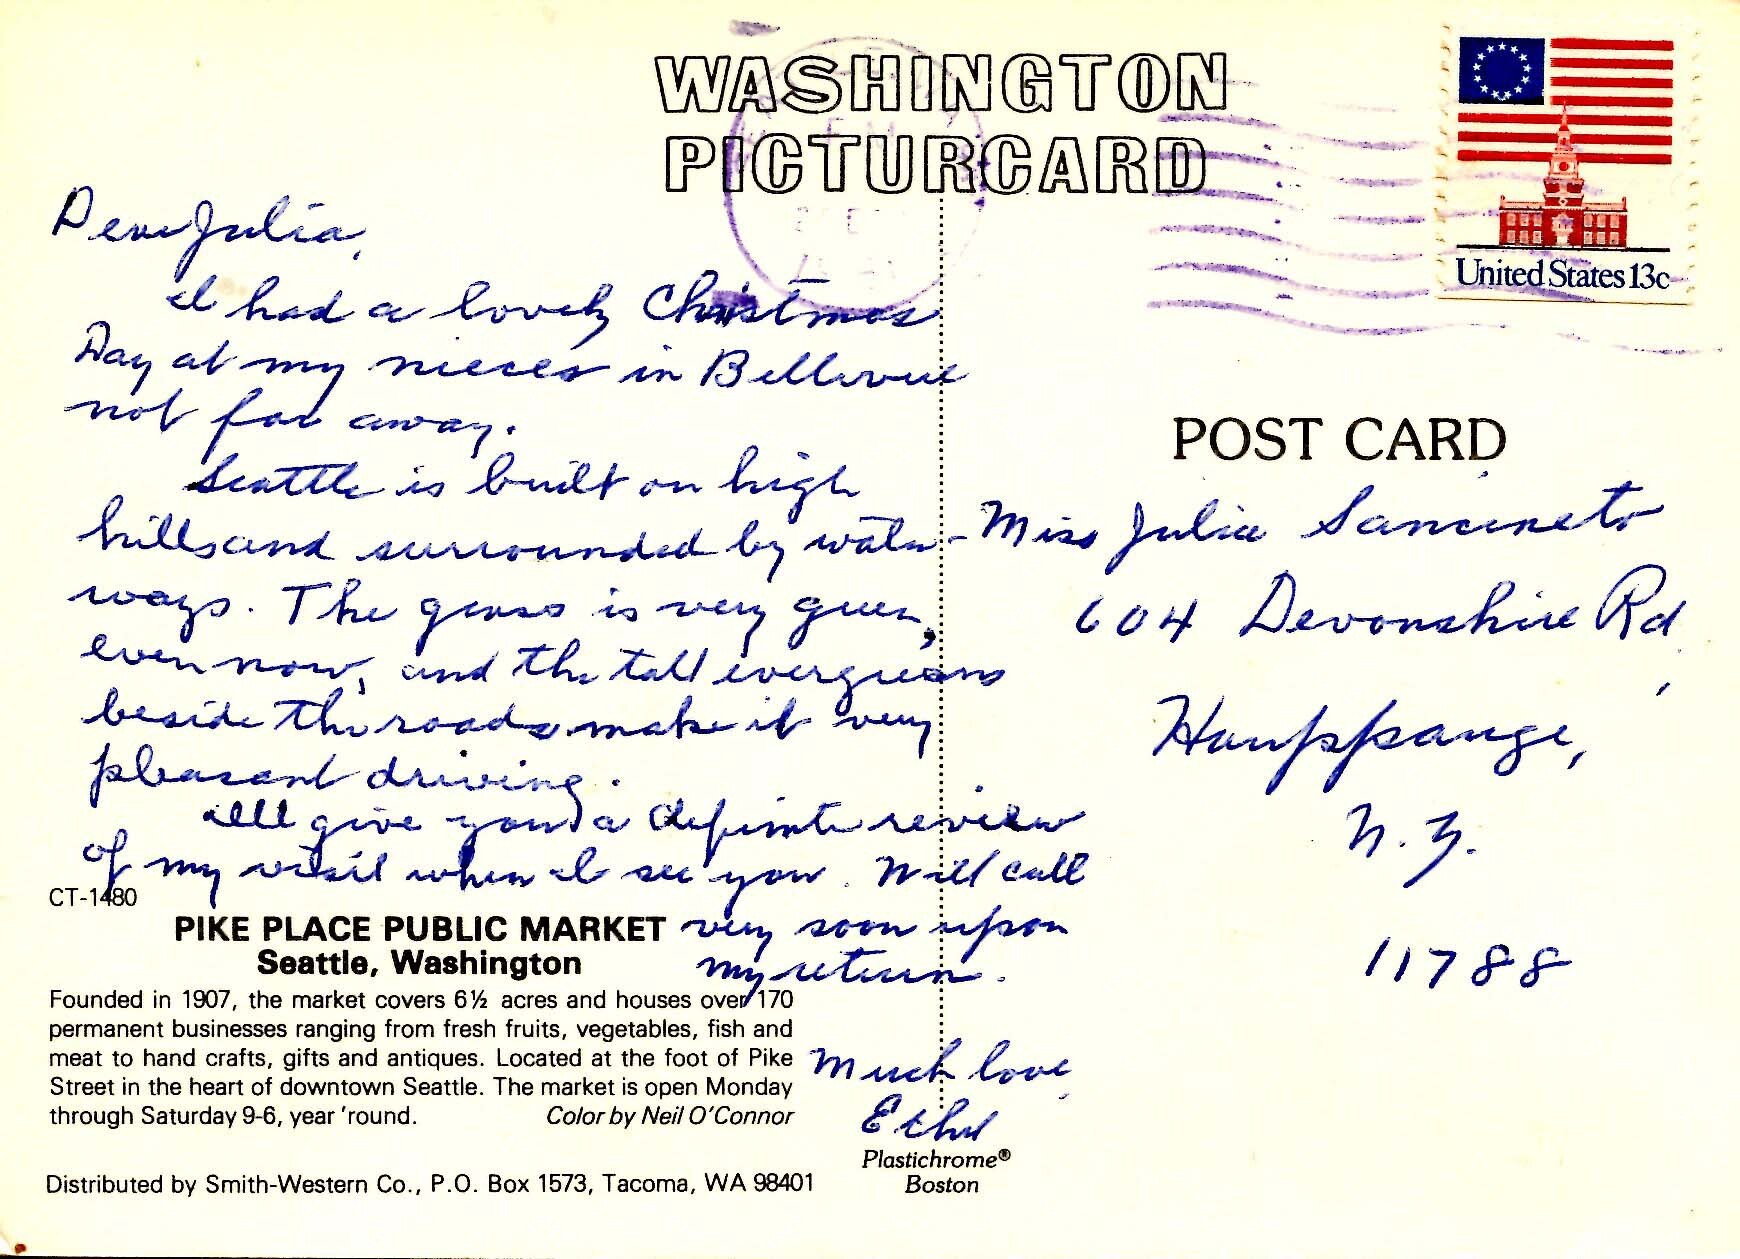 WASHINGTON
PICTURCARD
United States 13c
Dear Julia,
I had a lovely Christmas
Day at my nieces in Bellevue
not far away.
Seattle is built on high
hills and surrounded by water-
ways. The grass is very green,
even now, and the tall evergreens
beside the roads make it very
pleasant driving.
I'll give you a definite review
of my visit when I see you. Will call
very soon upon
my return.
Much love,
Ethel
POST CARD
Miss Julia Sancineto
604 Devonshire Rd,
Hauppauge,
N.Y.
11788
CT-1480
PIKE PLACE PUBLIC MARKET
Seattle, Washington
Founded in 1907, the market covers 6½ acres and houses over 170
permanent businesses ranging from fresh fruits, vegetables, fish and
meat to hand crafts, gifts and antiques. Located at the foot of Pike
Street in the heart of downtown Seattle. The market is open Monday
through Saturday 9-6, year 'round. Color by Neil O'Connor
Distributed by Smith-Western Co., P.O. Box 1573, Tacoma, WA 98401
Plastichrome®
Boston